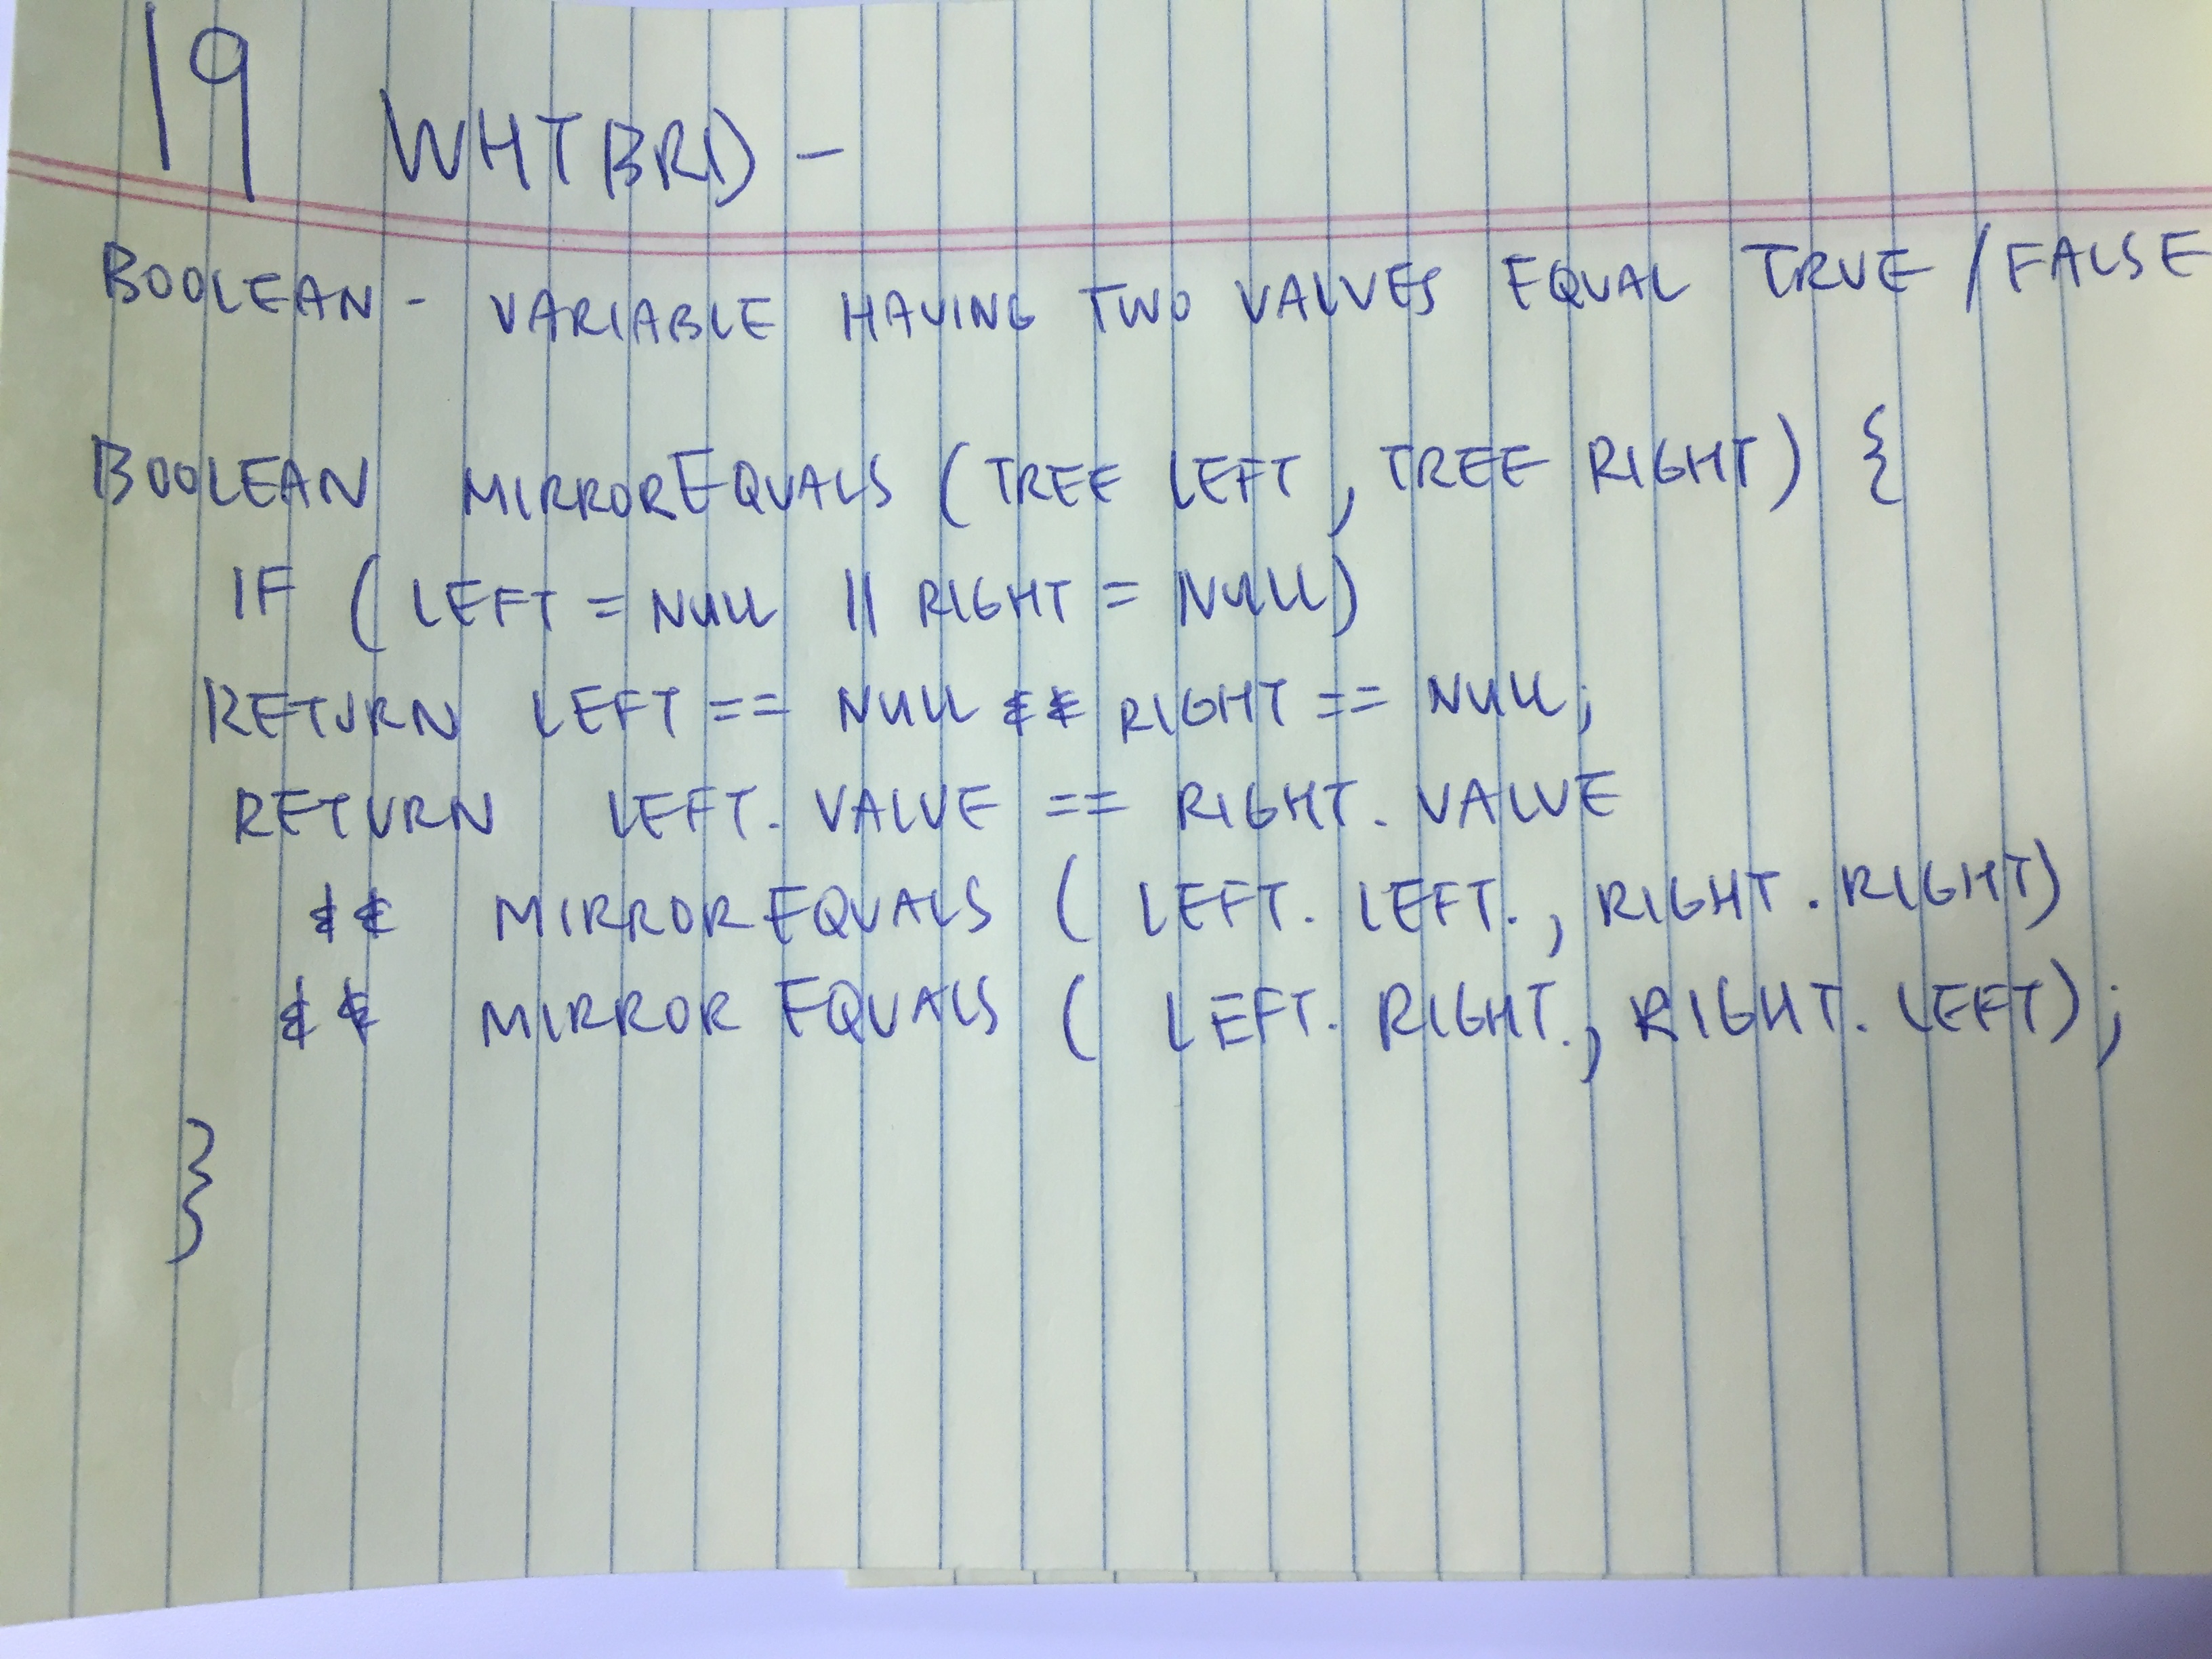 19 WHTBRD -
BOOLEAN - VARIABLE HAVING TWO VALUES EQUAL TRUE / FALSE
BOOLEAN MIRROREQUALS (TREE LEFT, TREE RIGHT) {
IF (LEFT = NULL || RIGHT = NULL)
RETURN LEFT == NULL && RIGHT == NULL;
RETURN LEFT. VALUE == RIGHT. VALUE
&& MIRROREQUALS (LEFT. LEFT., RIGHT. RIGHT)
&& MIRROR EQUALS (LEFT. RIGHT., RIGHT. LEFT);
}